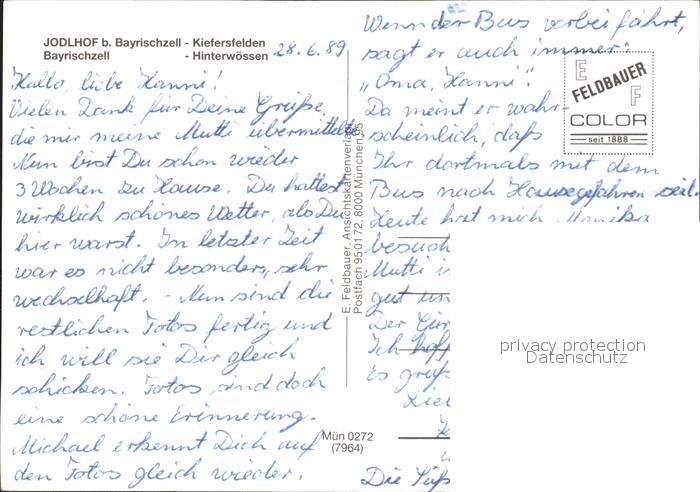 JODLHOF b. Bayrischzell - Kiefersfelden
Bayrischzell - Hinterwössen
28.6.89
Hallo, liebe Hanni!
Vielen Dank für Deine Grüße,
die mir meine Mutti übermittelte
Nun bist Du schon wieder
3 Wochen zu Hause. Du hattest
wirklich schönes Wetter, als Du
hier warst. In letzter Zeit
war es nicht besonders, sehr
wechselhaft. - Nun sind die
restlichen Fotos fertig und
ich will sie Dir gleich
schicken. Fotos sind doch
eine schöne Erinnerung.
Michael erkennt Dich auf
den Fotos gleich wieder.
E. Feldbauer, Ansichtskartenverlag
Postfach 95 01 72, 8000 München 95
Mün 0272
(7964)
Wenn der Bus vorbei fährt,
sagt er auch immer:
„Oma, Hanni".
Da meint er wahr-
scheinlich, daß
Ihr dortmals mit dem
Bus nach Hause gefahren seid.
Heute hat mich Monika
besuch
Mutti i
gut un
Der
Ich hoff
Es
Die
E
FELDBAUER
F
COLOR
seit 1888
privacy protection
Datenschutz